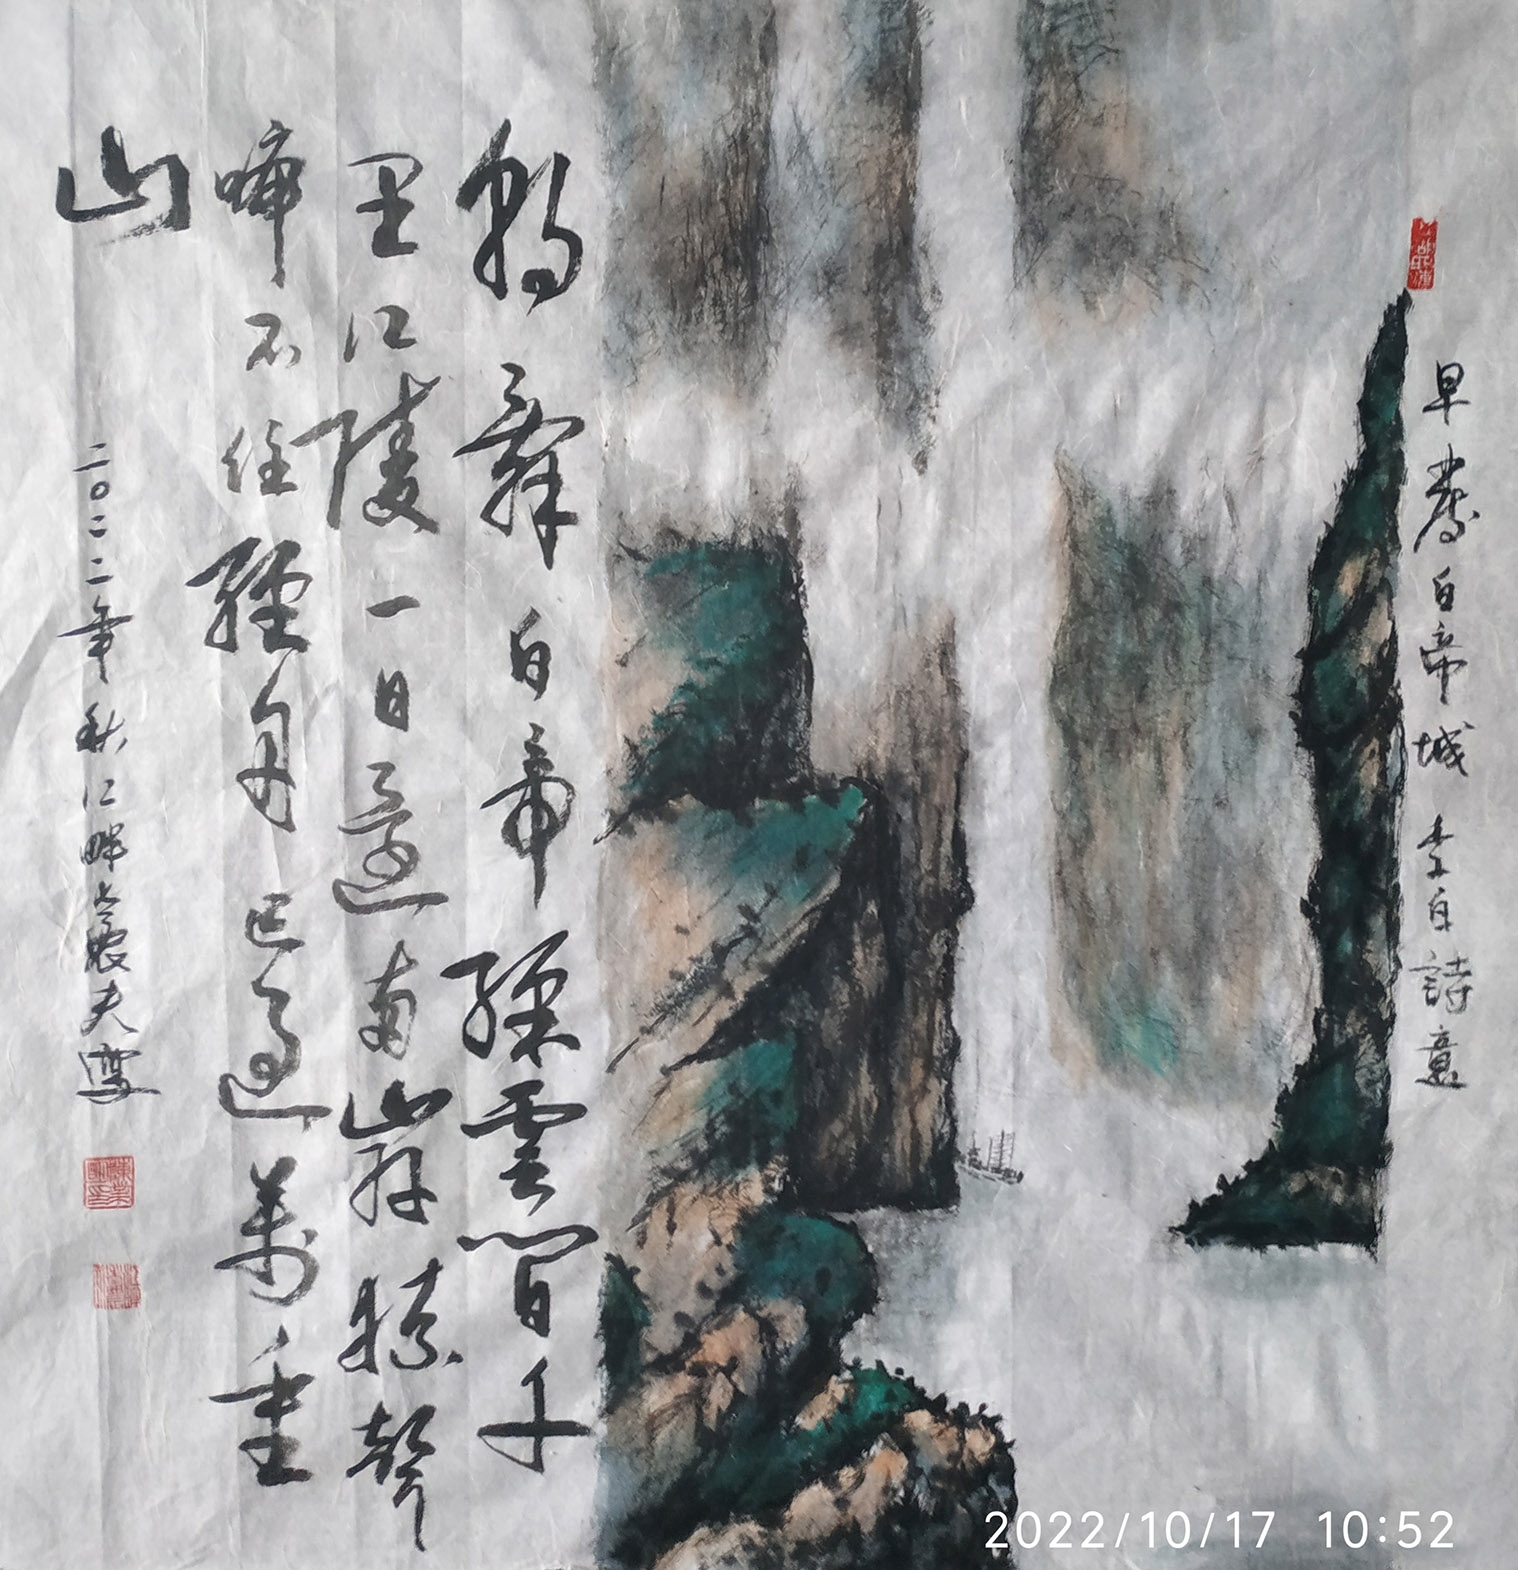 早發白帝城 李白詩意
朝辭白帝綵雲間千
里江陵一日還兩岸猿聲
啼不住輕舟已過萬重
山
二〇二二年秋江畔農夫寫
2022/10/17 10:52